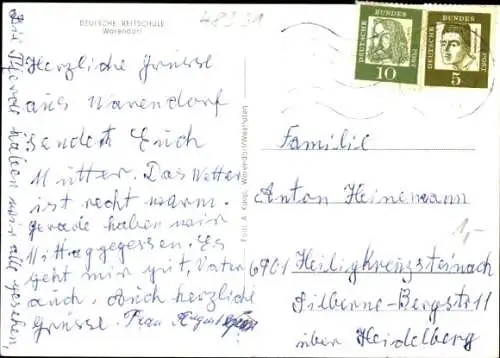 DEUTSCHE REITSCHULE
Warendorf
48231
Herzliche Grüsse
aus Warendorf
sendet Euch
Mutter. Das Wetter
ist recht warm.
gerade haben wir
Mittaggegessen. Es
geht mir gut, Vater
auch. Auch herzliche
Grüsse. Frau
Die Pferde haben wir alle gesehen,
DEUTSCHE BUNDES POST
10
DEUTSCHE BUNDES POST
5
Familie
Anton Heinemann
6901 Heiligkreuzsteinach
Silberne-Bergstr 11
über Heidelberg
1,-
Warendorf/Westfalen